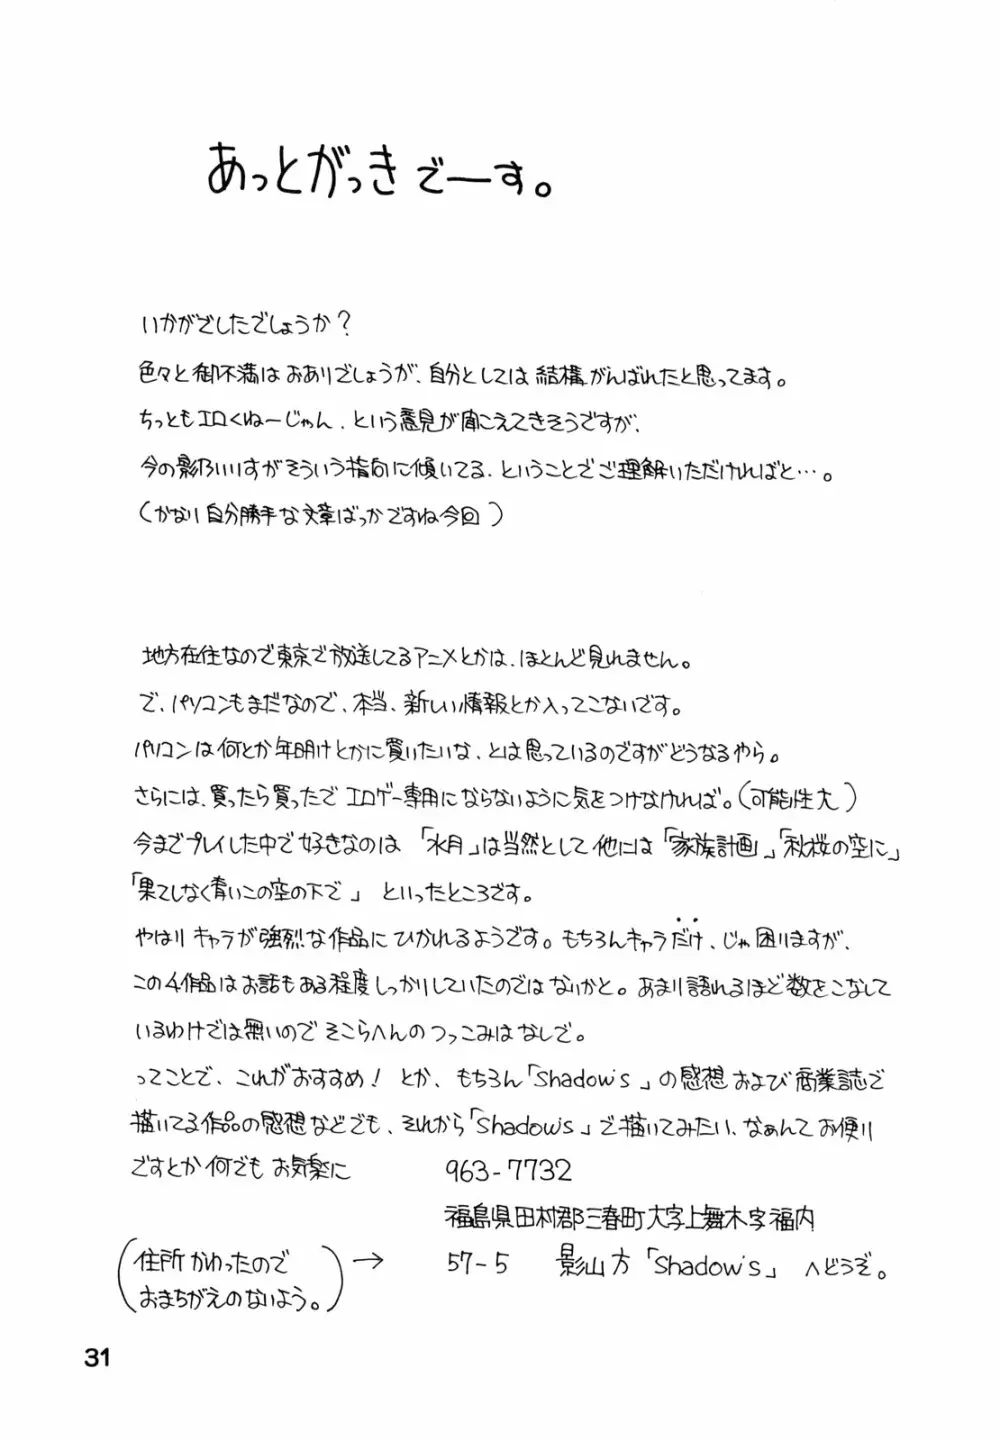 あっとがっきでーす。
いかがでしたでしょうか？
色々と御不満はおありでしょうが、自分としては結構がんばれたと思ってます。
ちっともエロくねーじゃん、という意見が聞こえてきそうですが、
今の影乃いりすがそういう指向に傾いてる、ということでご理解いただければと…。
(かなり自分勝手な文章ばっかですね今回)
地方在住なので東京で放送してるアニメとかは、ほとんど見れません。
で、パソコンもまだなので、本当、新しい情報とか入ってこないです。
パソコンは何とか年明けとかに買いたいな、とは思っているのですがどうなるやら。
さらには、買ったら買ったでエロゲー専用にならないように気をつけなければ。(可能性大)
今までプレイした中で好きなのは「水月」は当然として他には「家族計画」「秋桜の空に」
「果てしなく青いこの空の下で」といったところです。
やはりキャラが強烈な作品にひかれるようです。もちろんキャラだけ、じゃ困りますが、
この4作品はお話もある程度しっかりしていたのではないかと。あまり語れるほど数をこなして
いるわけでは無いのでそこらへんのつっこみはなしで。
ってことで、これがおすすめ！とか、もちろん「Shadow's」の感想および商業誌で
描いてる作品の感想などでも、それから「Shadow's」で描いてみたい、なぁんてお便り
ですとか何でもお気楽に 963-7732
福島県田村郡三春町大字上舞木字福内
(住所かわったので → 57-5 影山方「Shadow's」へどうぞ。
おまちがえのないよう。)
31